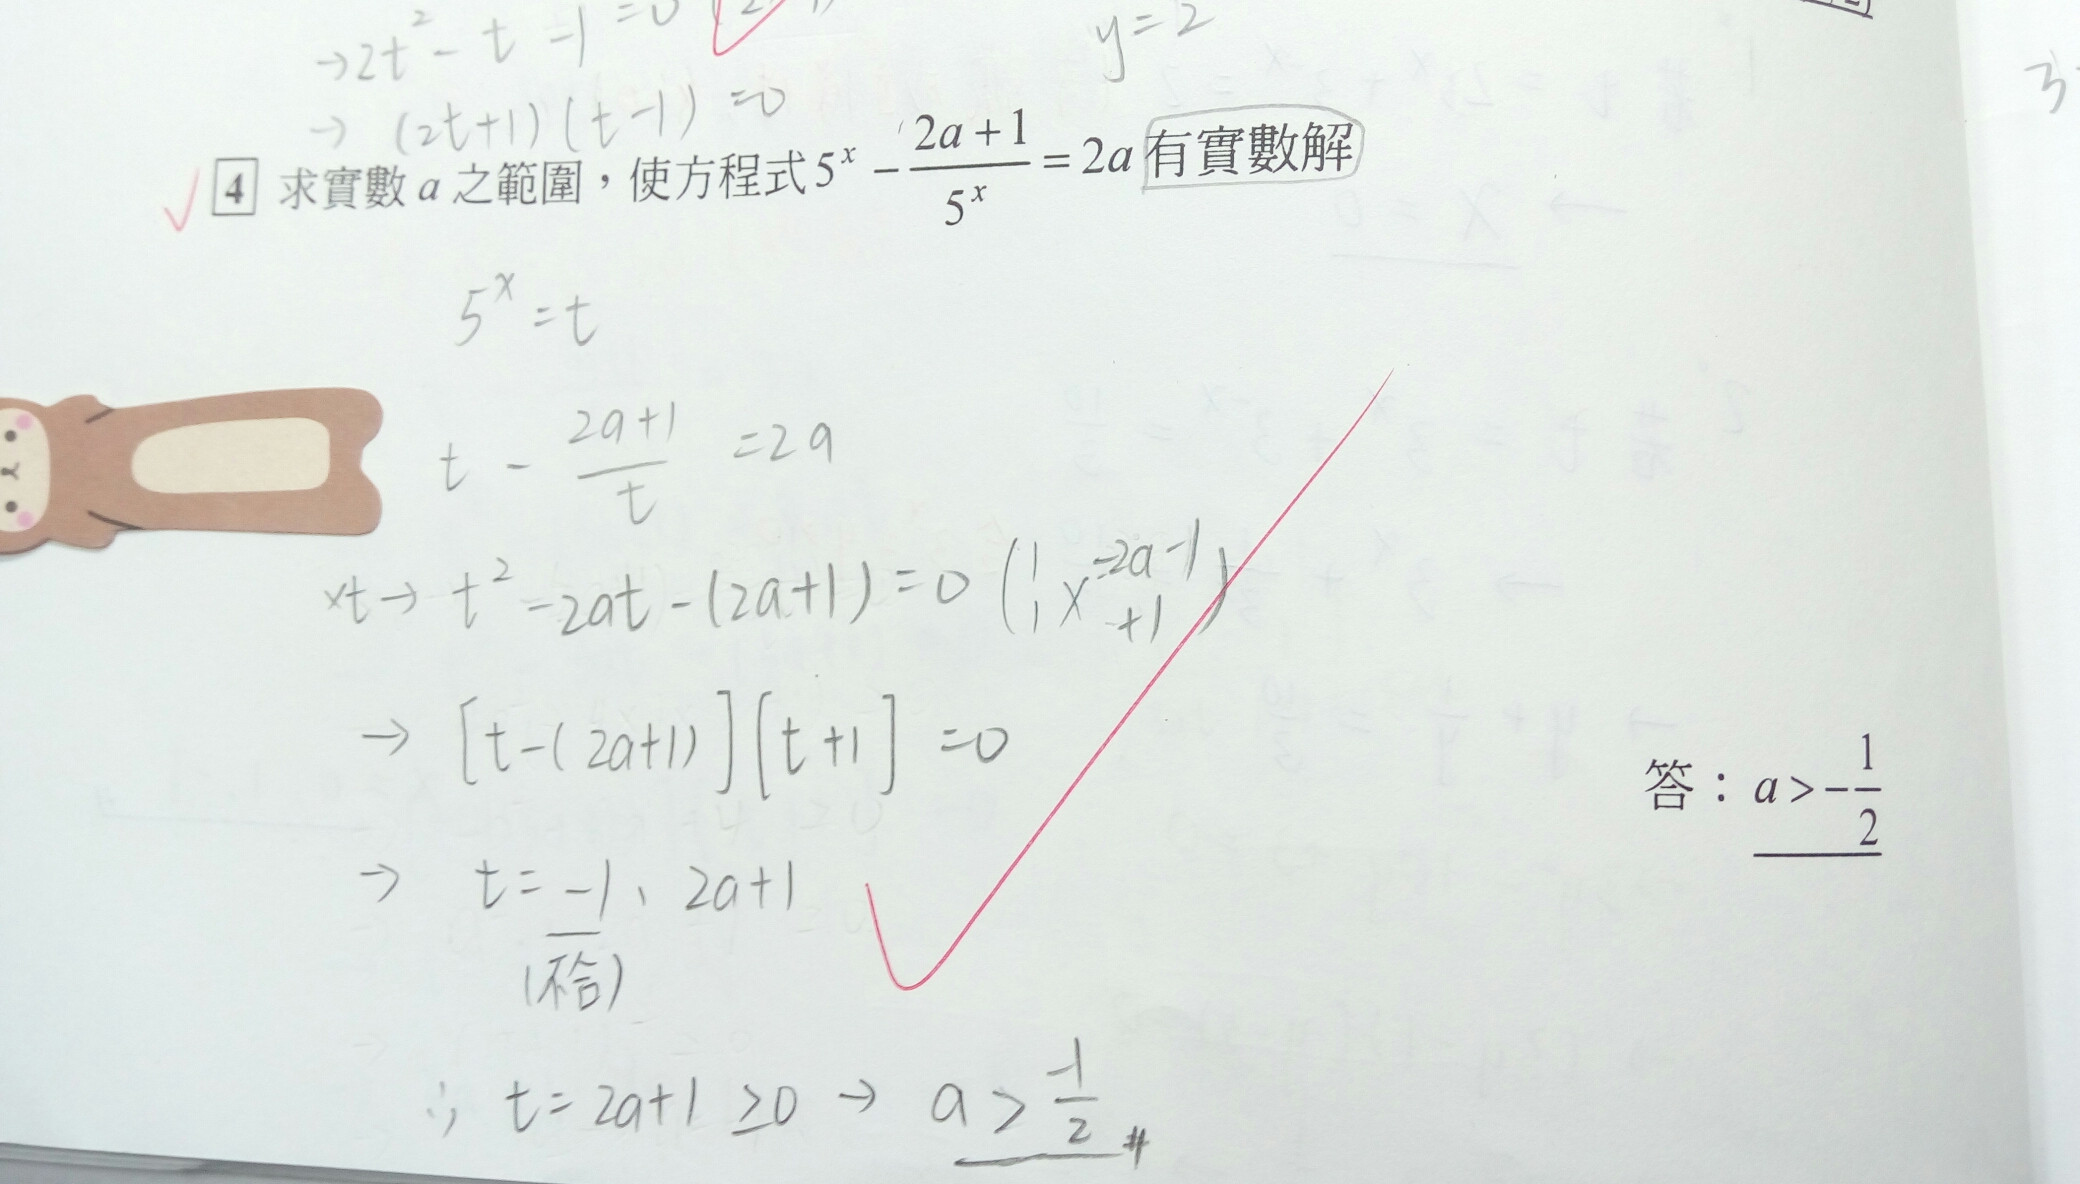 →2t² - t - 1 = 0
y = 2
→ (2t+1)(t-1) = 0
4 求實數 a 之範圍，使方程式 5^x - (2a+1)/5^x = 2a 有實數解
5^x = t
t - (2a+1)/t = 2a
×t → t² - 2at - (2a+1) = 0 (1 1 × -2a-1 +1)
→ [t-(2a+1)][t+1] = 0
→ t = -1、2a+1
(不合)
∴ t = 2a+1 ≥0 → a > -1/2 #
答：a > -1/2